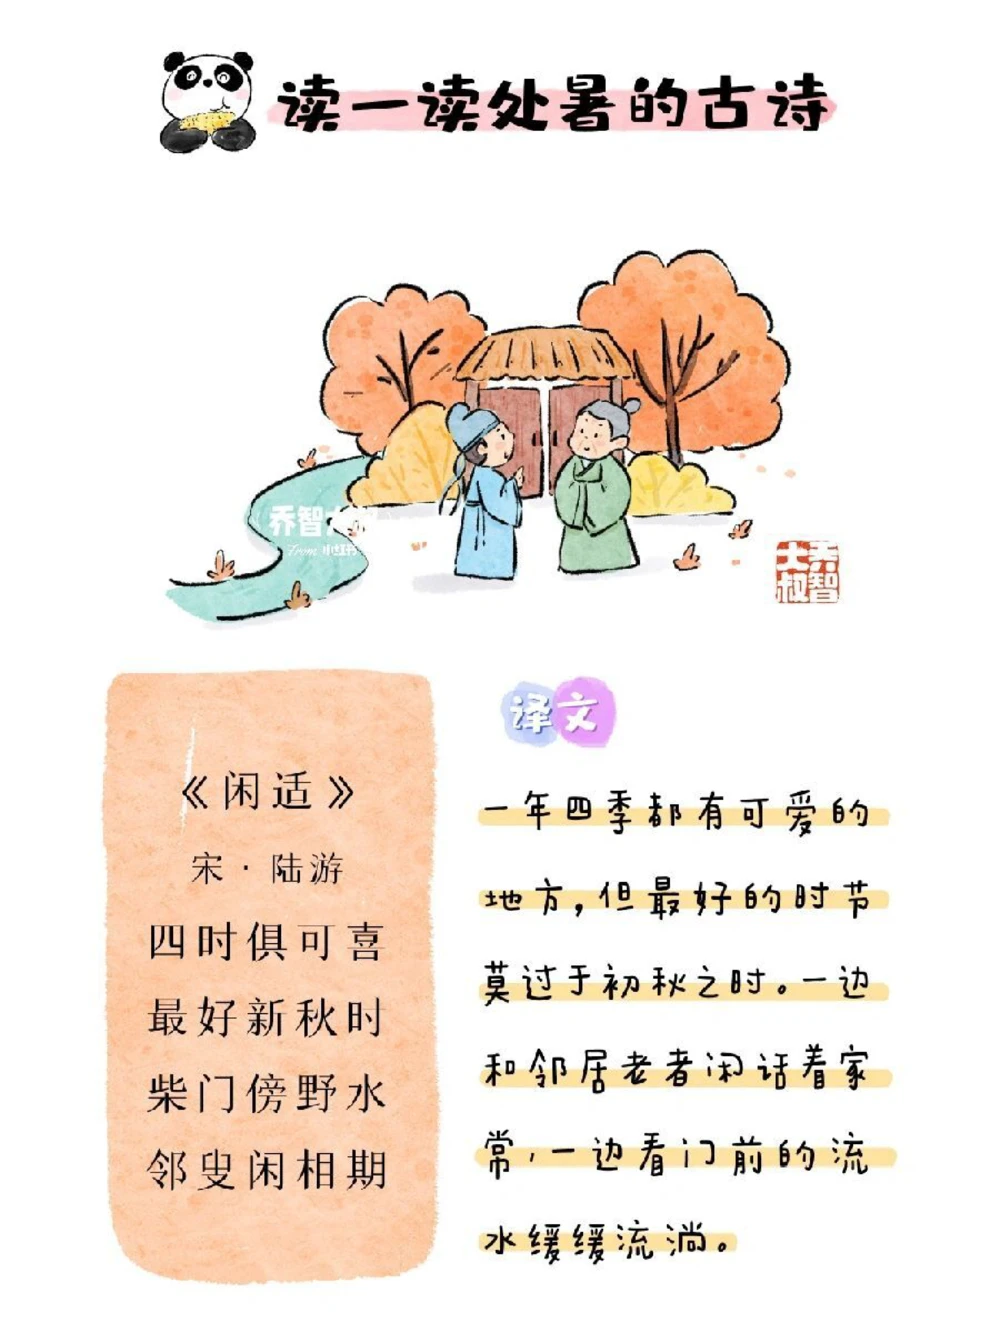 读一读处暑的古诗
乔智大叔
From 小红书
乔智
大叔
《闲适》
宋·陆游
四时俱可喜
最好新秋时
柴门傍野水
邻叟闲相期
译文
一年四季都有可爱的
地方，但最好的时节
莫过于初秋之时。一边
和邻居老者闲话着家
常，一边看门前的流
水缓缓流淌。